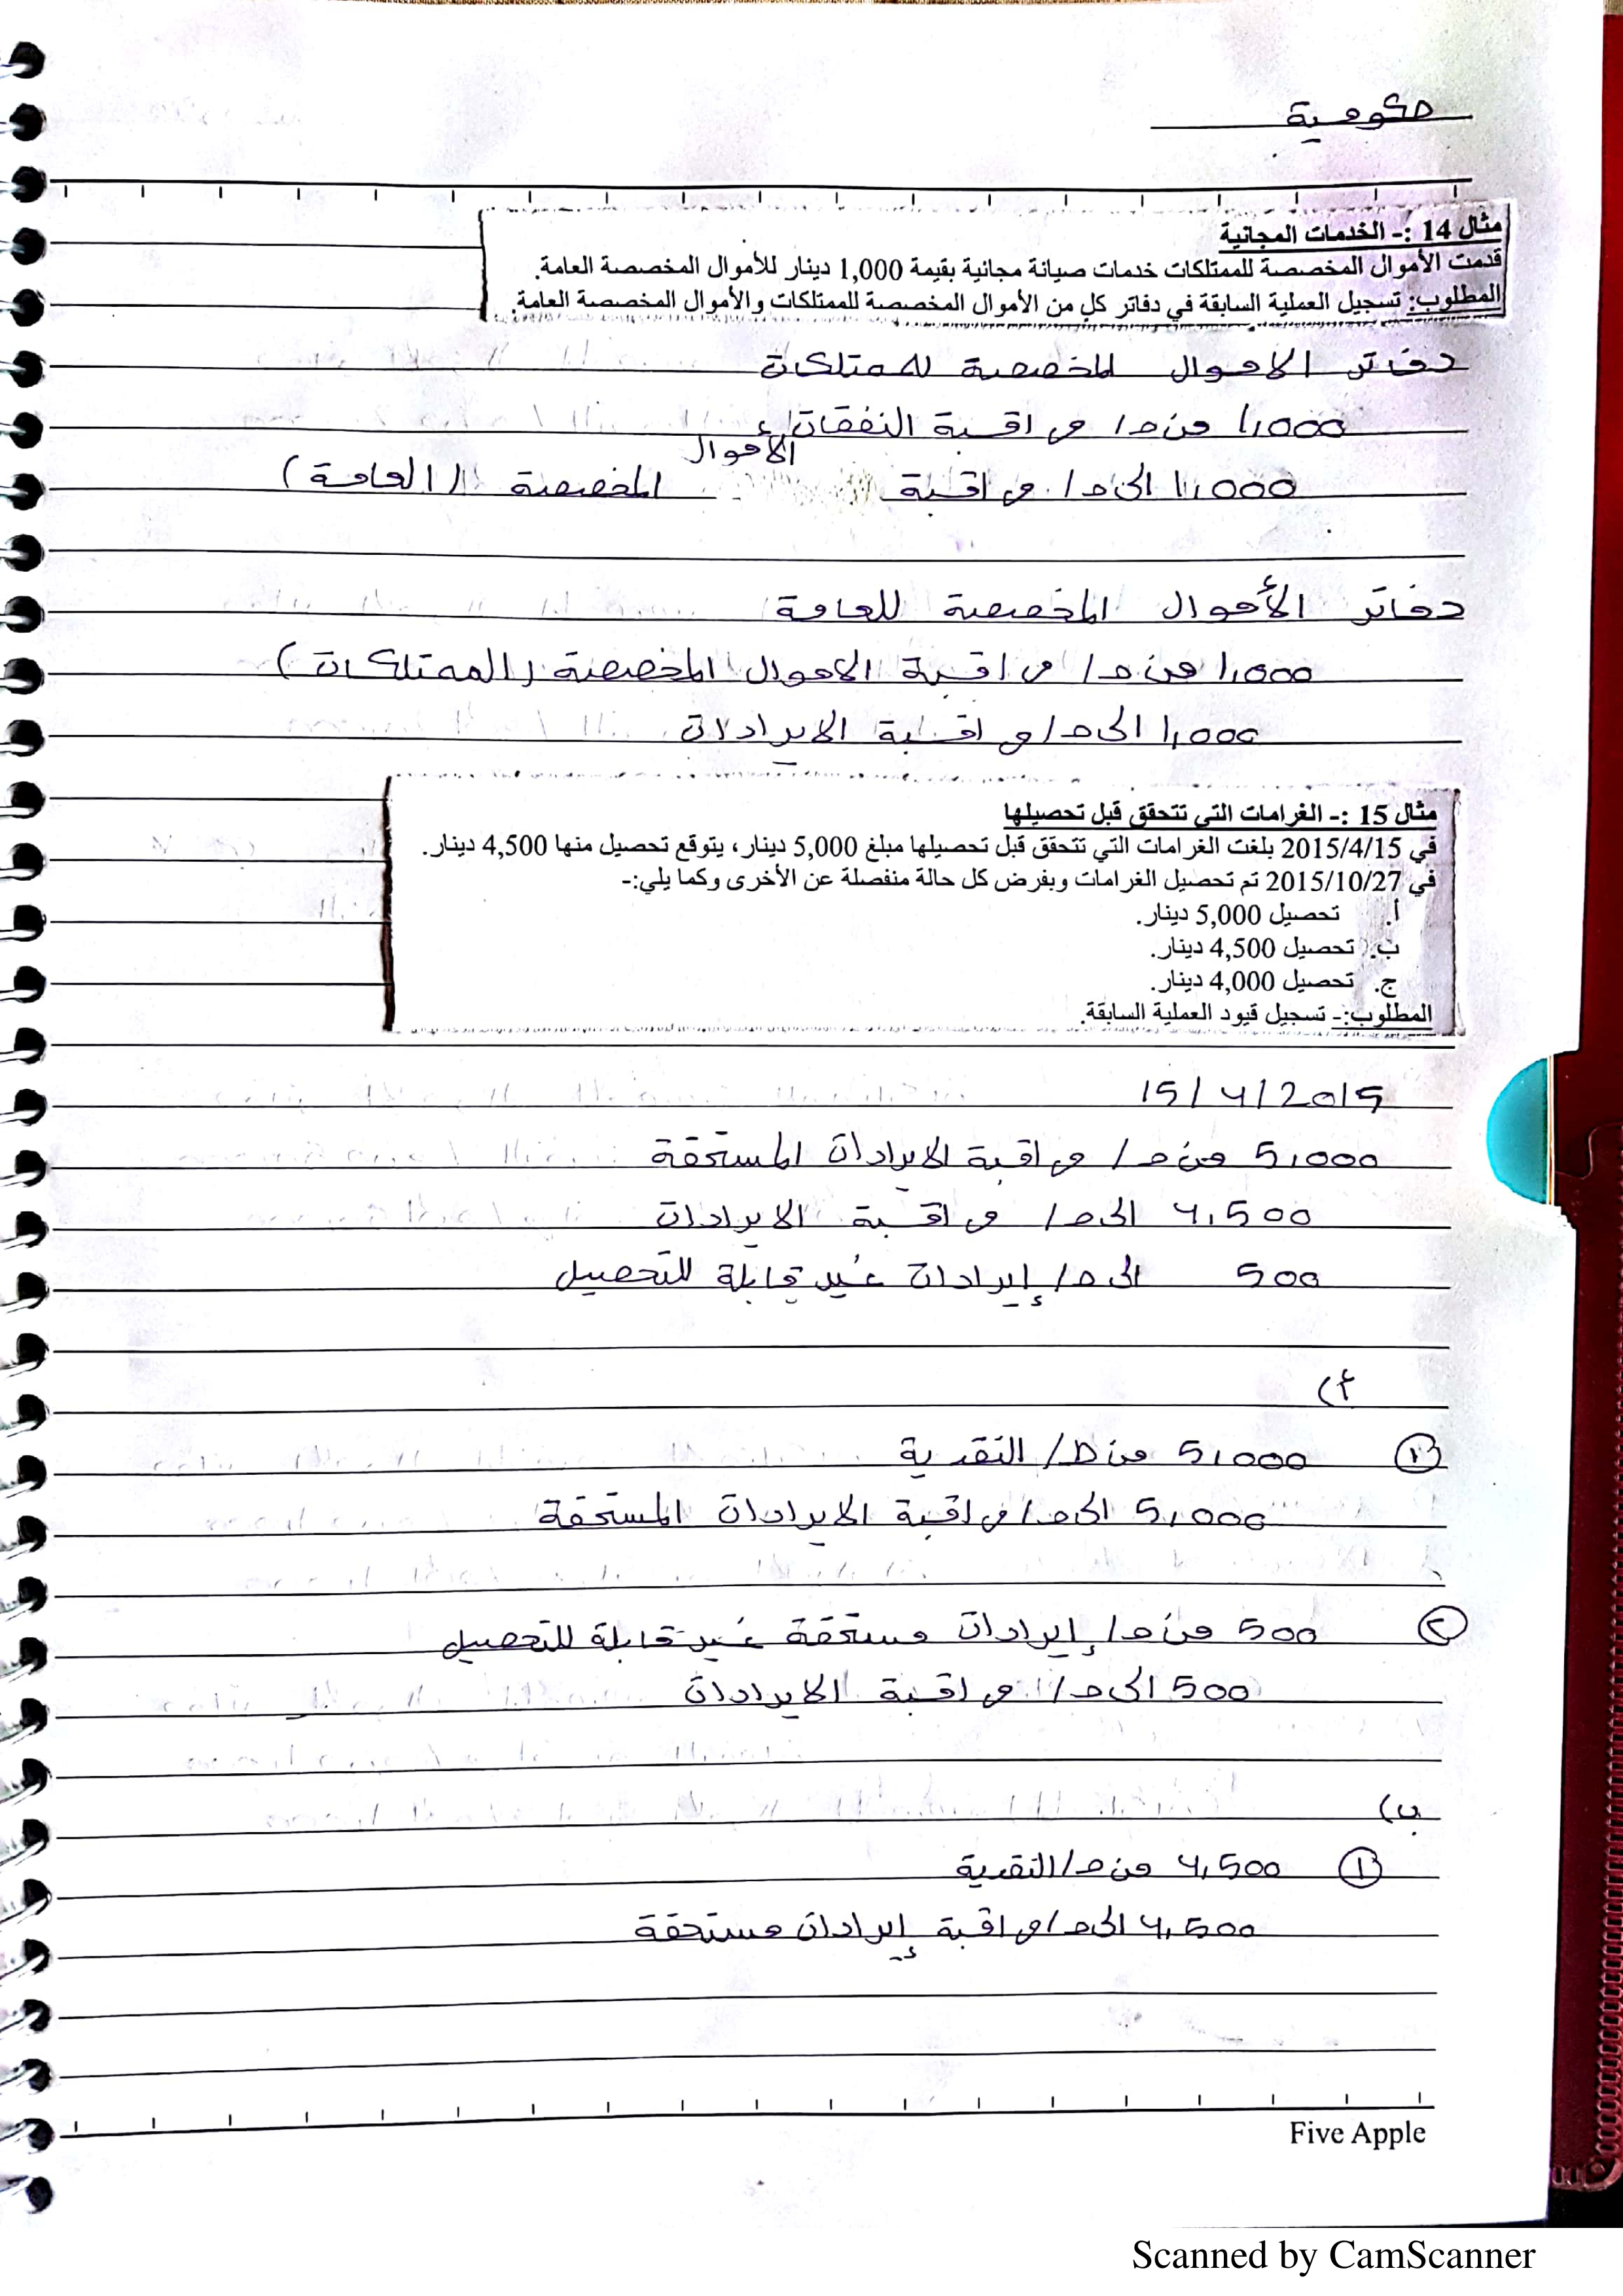 حكومية
مثال 14 :- الخدمات المجانية
قدمت الأموال المخصصة للممتلكات خدمات صيانة مجانية بقيمة 1,000 دينار للأموال المخصصة العامة.
المطلوب: تسجيل العملية السابقة في دفاتر كل من الأموال المخصصة للممتلكات والأموال المخصصة العامة.
دفاتر الاموال المخصصة للممتلكات
1,000 من ح/ مراقبة النفقات
1,000 الى ح/ مراقبة الاموال المخصصة (العامة)
دفاتر الأموال المخصصة للعامة
1,000 من ح/ مراقبة الاموال المخصصة (الممتلكات)
1,000 الى ح/ مراقبة الايرادات
مثال 15 :- الغرامات التي تتحقق قبل تحصيلها
في 2015/4/15 بلغت الغرامات التي تتحقق قبل تحصيلها مبلغ 5,000 دينار، يتوقع تحصيل منها 4,500 دينار.
في 2015/10/27 تم تحصيل الغرامات وبفرض كل حالة منفصلة عن الأخرى وكما يلي:-
أ. تحصيل 5,000 دينار.
ب. تحصيل 4,500 دينار.
ج. تحصيل 4,000 دينار.
المطلوب:- تسجيل قيود العملية السابقة.
15/4/2015
5,000 من ح/ مراقبة الايرادات المستحقة
4,500 الى ح/ مراقبة الايرادات
500 الى ح/ إيرادات غير قابلة للتحصيل
أ)
① 5,000 من ح/ النقدية
5,000 الى ح/ مراقبة الايرادات المستحقة
② 500 من ح/ إيرادات مستحقة غير قابلة للتحصيل
500 الى ح/ مراقبة الايرادات
ب)
① 4,500 من ح/ النقدية
4,500 الى ح/ مراقبة إيرادات مستحقة
Five Apple
Scanned by CamScanner